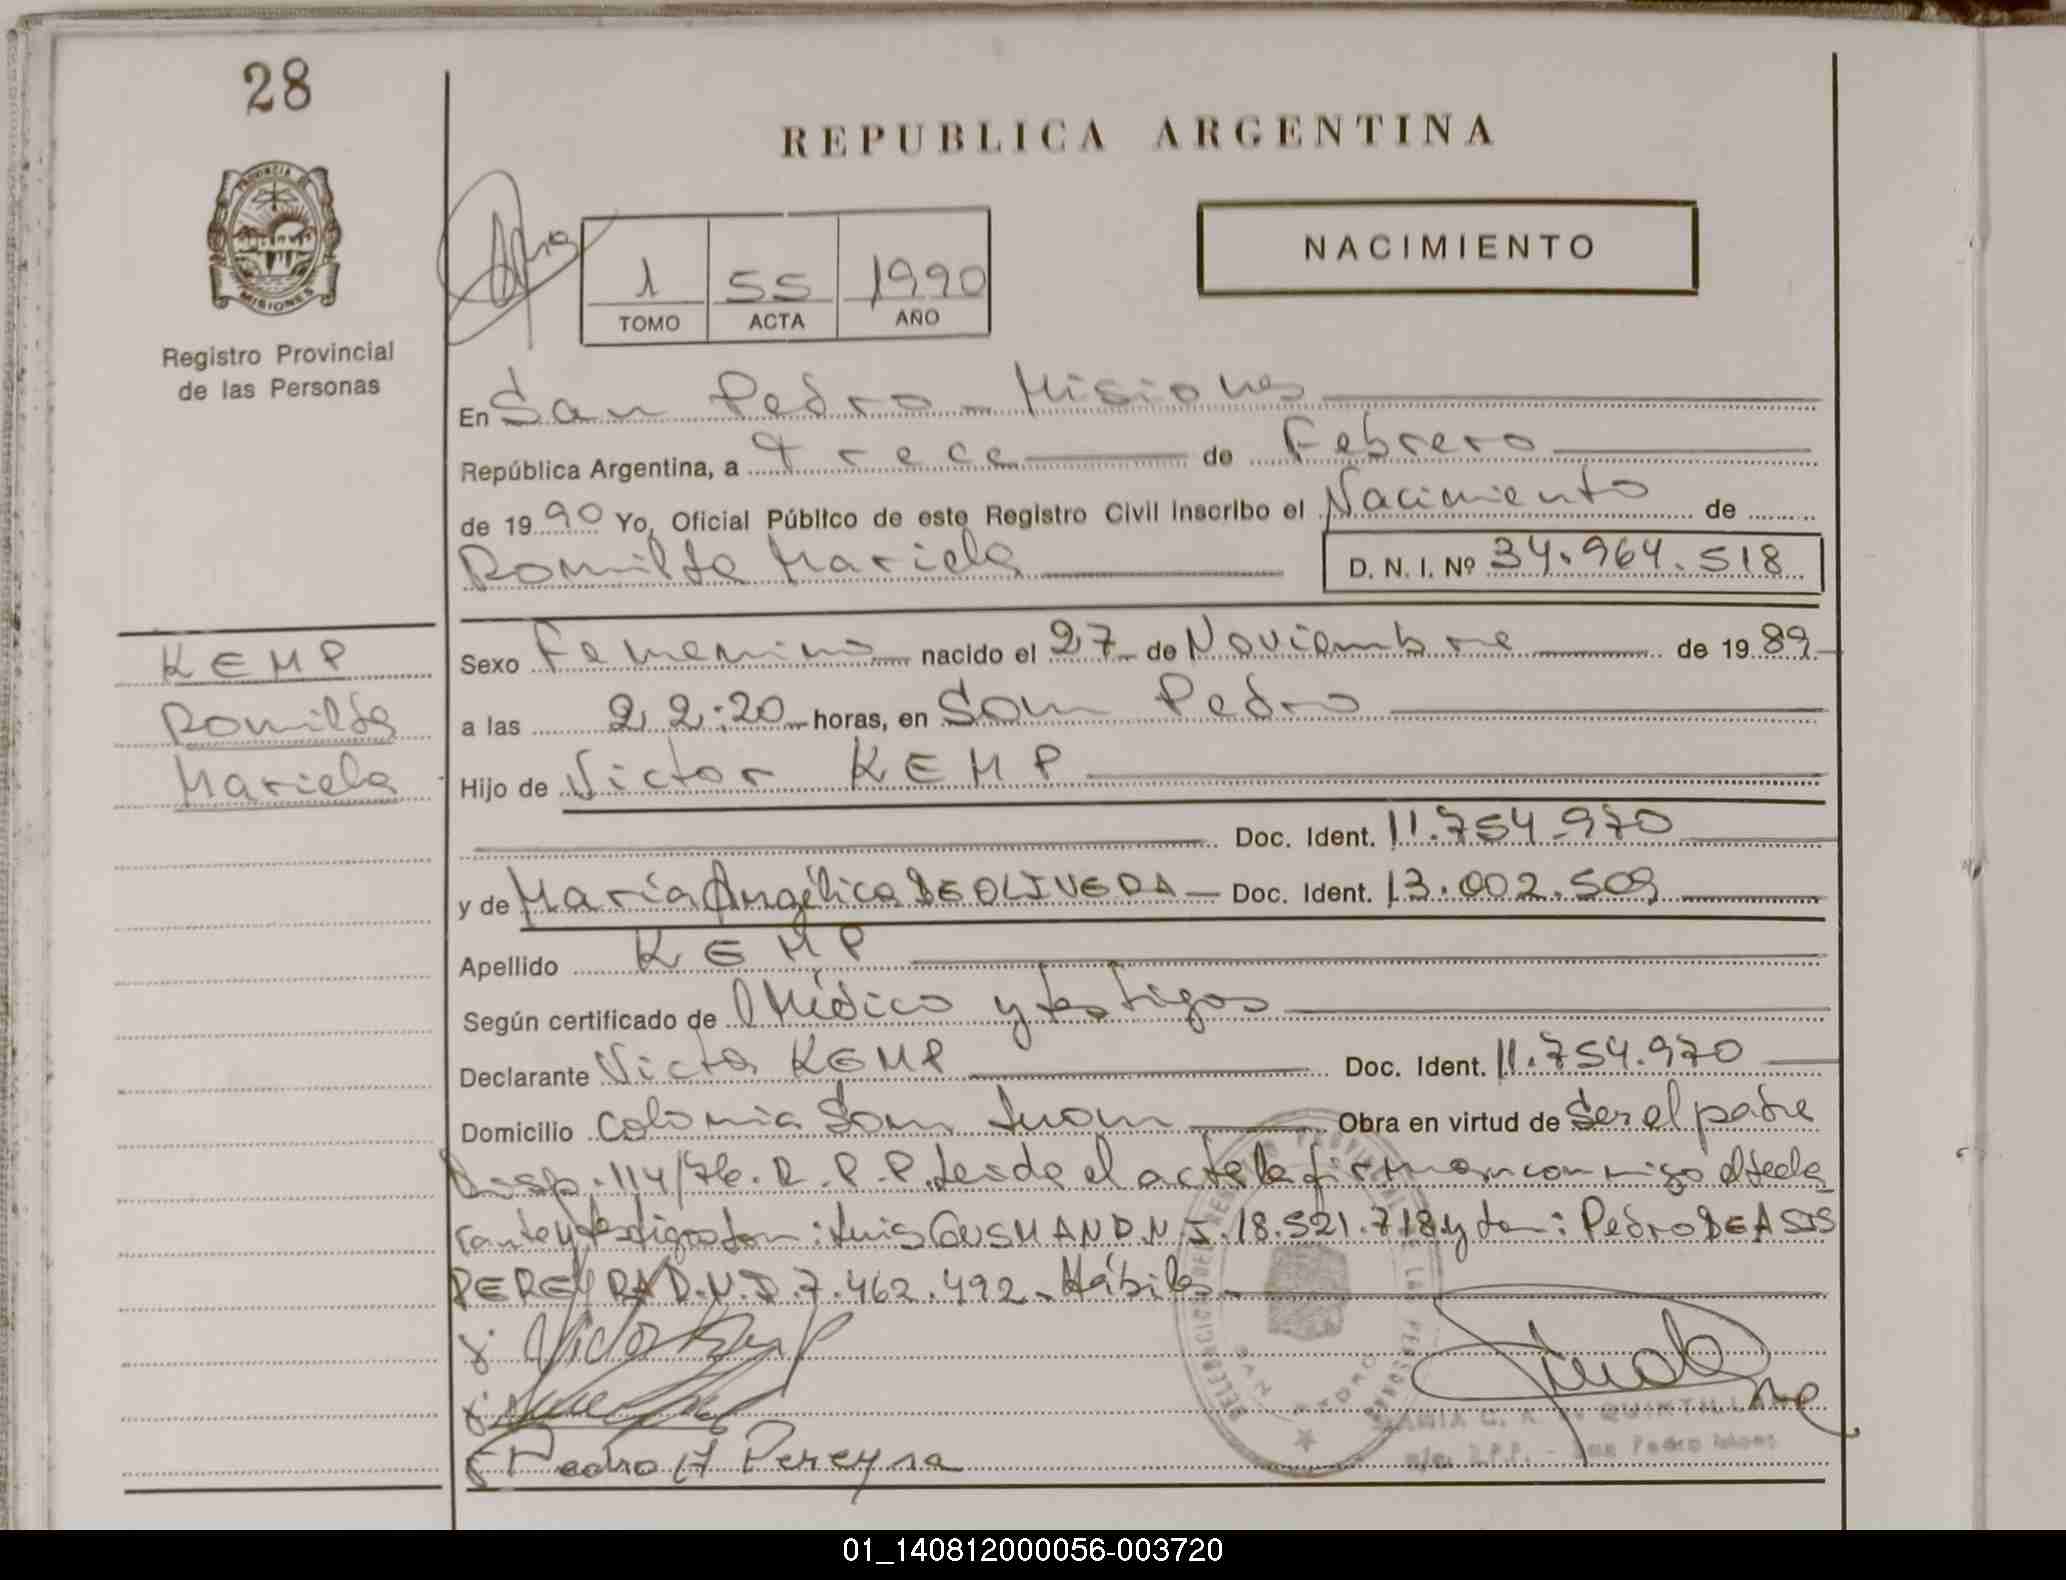 28
REPUBLICA ARGENTINA
PROVINCIA DE
MISIONES
Registro Provincial
de las Personas
1 55 1990
TOMO ACTA AÑO
NACIMIENTO
En San Pedro - Misiones
República Argentina, a trece de Febrero
de 1990 Yo, Oficial Público de este Registro Civil inscribo el Nacimiento de
Romilda Mariela D. N. I. Nº 34.964.518
KEMP
Romilda
Mariela
Sexo Femenino nacido el 27 de Noviembre de 1989
a las 22:20 horas, en San Pedro
Hijo de Victor KEMP
Doc. Ident. 11.754.970
y de María Angélica DE OLIVERA Doc. Ident. 13.002.509
Apellido KEMP
Según certificado de Médico y testigos
Declarante Victor KEMP Doc. Ident. 11.754.970
Domicilio Colonia San Juan Obra en virtud de Ser el padre
Disp. 114/76. R. P. P. Leida el acta la firman conmigo el decla
rante y testigos Don: Luis GUSMAN D.N.I. 18.521.718 y Don: Pedro DE ASIS
PEREYRA D.N.I. 7.462.492. Hábiles
Victor Kemp
Pedro A Pereyra
SAN PEDRO
QUINTILLA
R.P.P. - San Pedro Mnes
01_140812000056-003720